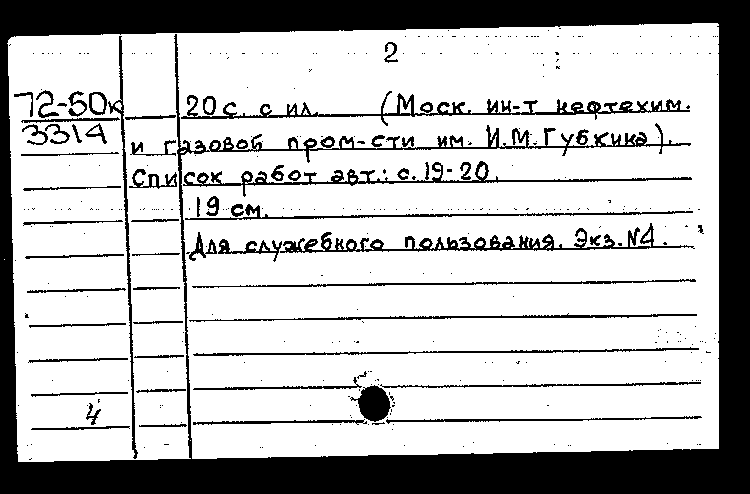 2
72-50к 20 с. с ил. (Моск. ин-т нефтехим.
3314
и газовой пром-сти им. И.М.Губкина).
Список работ авт.: с. 19-20.
19 см.
Для служебного пользования. Экз.№4.
4